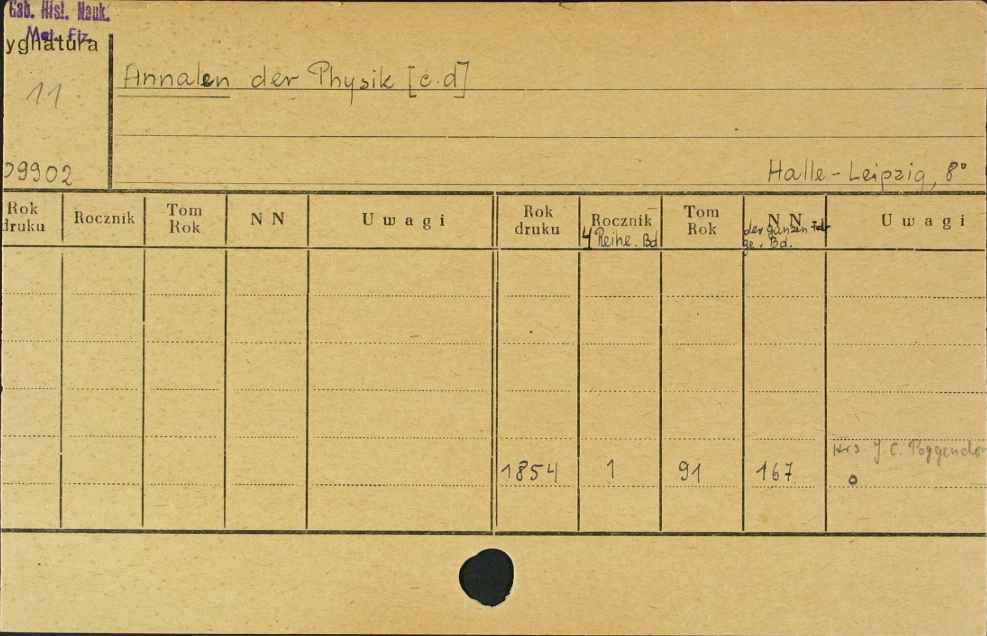 Gab. Hist. Nauk.
Mat. Fiz.
ygnatura
11
Annalen der Physik [c.d]
09902
Halle-Leipzig, 8°
Rok druku Rocznik Tom Rok N N Uwagi Rok druku Rocznik Tom Rok N N Uwagi
4 Reihe. Bd der ganzen Fol-
ge. Bd.
J. C. Poggendor
1854 1 91 167 o